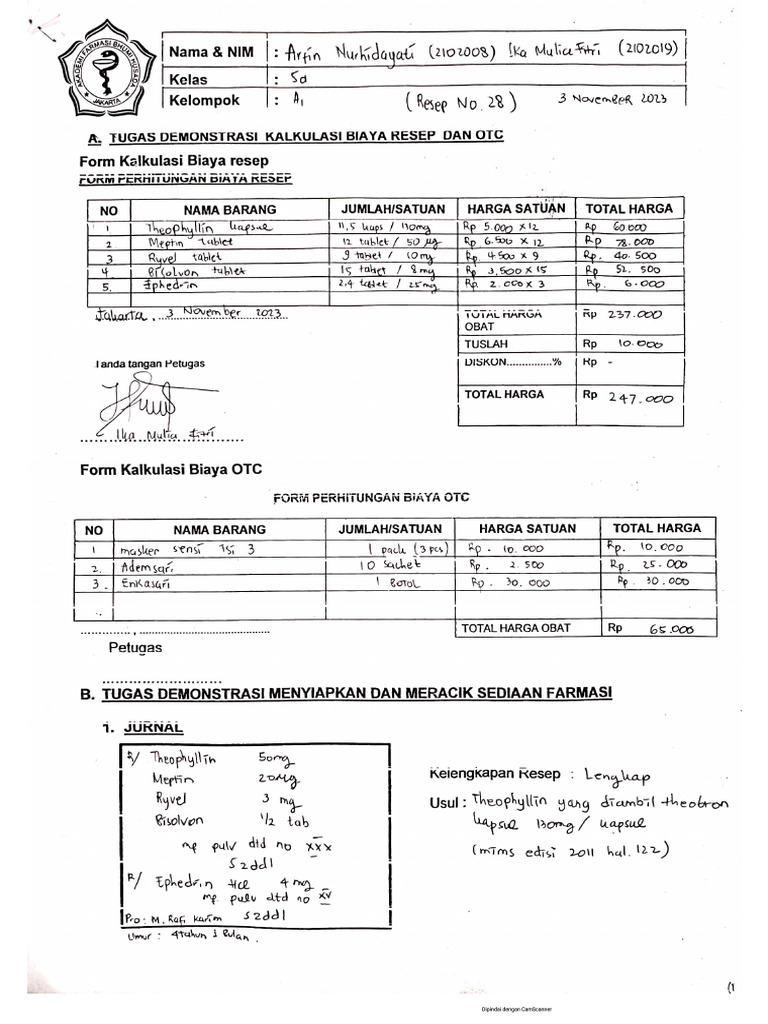 AKADEMI FARMASI BHUMI HUSADA
JAKARTA
Nama & NIM : Arfin Nurhidayati (2102008) Ika Mulia Fitri (2102019)
Kelas : 5a
Kelompok : A1 (Resep No. 28) 3 November 2023
A. TUGAS DEMONSTRASI KALKULASI BIAYA RESEP DAN OTC
Form Kalkulasi Biaya resep
FORM PERHITUNGAN BIAYA RESEP
NO NAMA BARANG JUMLAH/SATUAN HARGA SATUAN TOTAL HARGA
1 Theophyllin kapsul 11,5 kaps / 130mg Rp 5.000 x 12 Rp 60000
2. Meptin tablet 12 tablet / 50 µg Rp 6.500 x 12 Rp 78.000
3 Ryvel tablet 9 tablet / 10mg Rp. 4500 x 9 Rp. 40.500
4. Bisolvon tablet 15 tablet / 8mg Rp 3,500 x 15 Rp 52. 500
5. Ephedrin 2,4 tablet / 25mg Rp. 2.000 x 3 Rp. 6.000
Jakarta, 3 November 2023
TOTAL HARGA OBAT Rp 237.000
TUSLAH Rp 10.000
Tanda tangan Petugas
DISKON...............% Rp -
TOTAL HARGA Rp 247.000
Ika Mulia Fitri
Form Kalkulasi Biaya OTC
FORM PERHITUNGAN BIAYA OTC
NO NAMA BARANG JUMLAH/SATUAN HARGA SATUAN TOTAL HARGA
1 masker sensi isi 3 1 pack (3 pcs) Rp. 10.000 Rp. 10.000
2. Ademsari 10 sachet Rp. 2.500 Rp. 25.000
3. Enkasari 1 Botol Rp. 30.000 Rp. 30.000
.............. , ........................................
TOTAL HARGA OBAT Rp 65.000
Petugas
..........................
B. TUGAS DEMONSTRASI MENYIAPKAN DAN MERACIK SEDIAAN FARMASI
1. JURNAL
R/ Theophyllin 50mg
Meptin 20mg
Ryvel 3 mg
Bisolvon 1/2 tab
mf pulv dtd no xxx
S2dd1
R/ Ephedrin Hcl 4 mg
mf. pulv dtd no xv
S2dd1
Pro: M. Rafi Karim
Umur : 4tahun 1 Bulan.
Kelengkapan Resep : Lengkap
Usul : Theophyllin yang diambil theobron
kapsul 130mg / kapsul
(mims edisi 2011 hal. 122)
(1
Dipindai dengan CamScanner